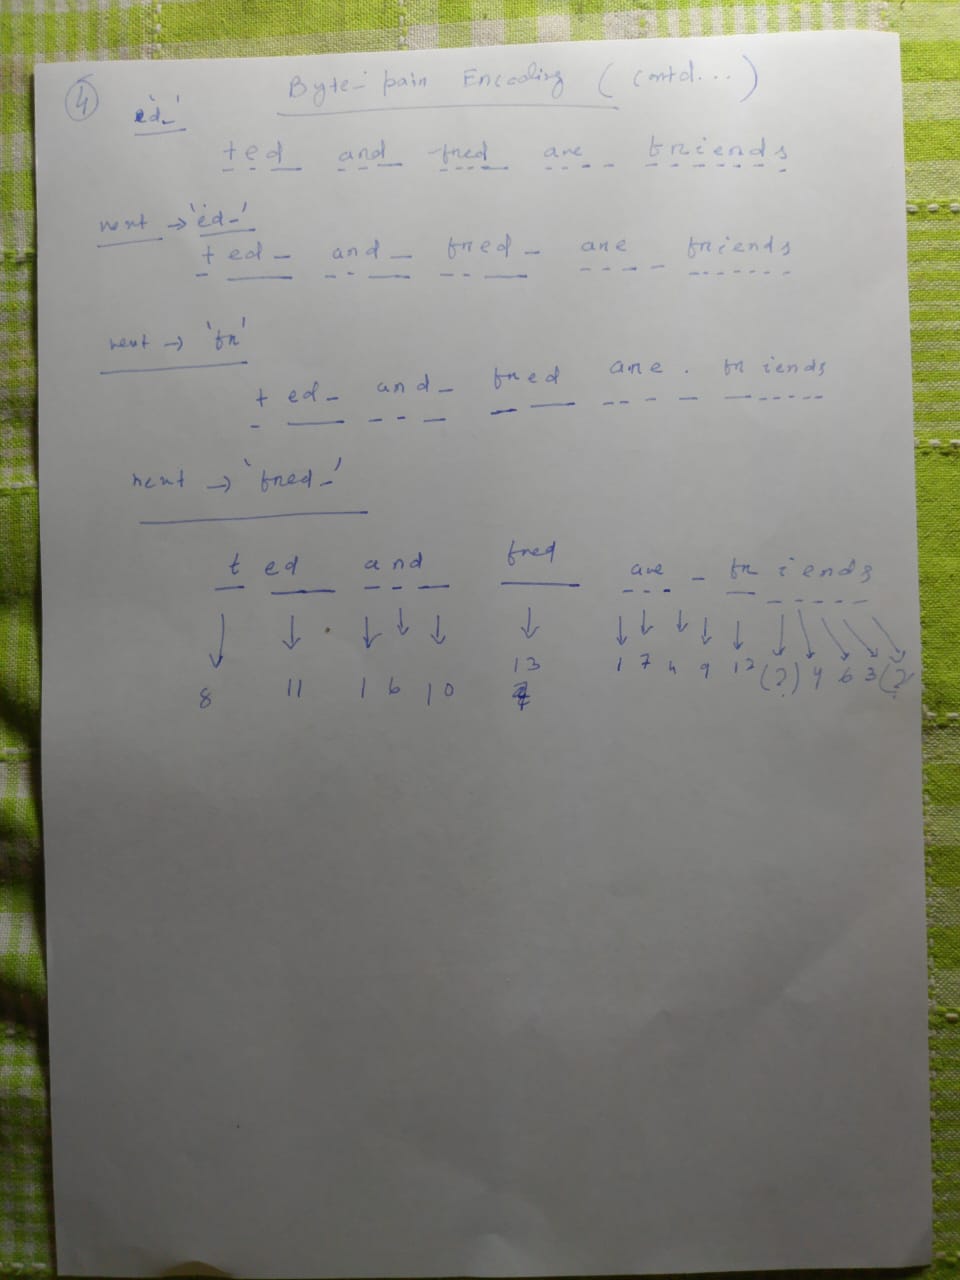 4 Byte-pair Encoding (contd...)
'd_'
ted_ and_ fred are friends
next → 'ed_'
ted_ and_ fred_ are friends
next → 'fr'
t ed_ and_ fred are. fr iends
next → 'fred_'
t ed and fred are _ fr iends
↓ ↓ ↓ ↓ ↓ ↓ ↓ ↓ ↓ ↓ ↓ ↓ ↓ ↓ ↓ ↓
8 11 1 6 10 13 1 7 4 9 12 (?) 4 6 3 (?)